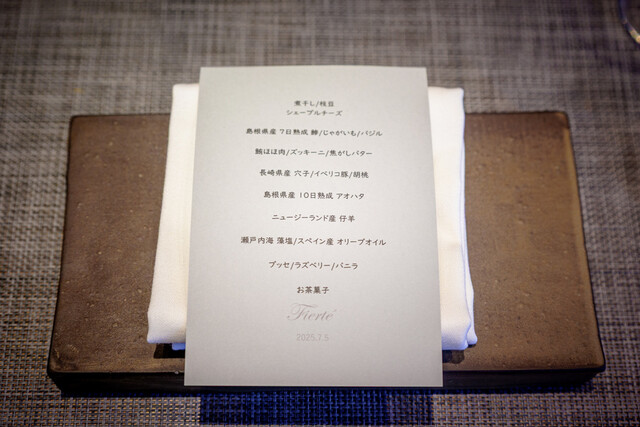 煮干し/枝豆
シェーブルチーズ
島根県産 7日熟成 鰺/じゃがいも/バジル
鮪ほほ肉/ズッキーニ/焦がしバター
長崎県産 穴子/イベリコ豚/胡桃
島根県産 10日熟成 アオハタ
ニュージーランド産 仔羊
瀬戸内海 藻塩/スペイン産 オリーブオイル
ブッセ/ラズベリー/バニラ
お茶菓子
Fierté
2025.7.5